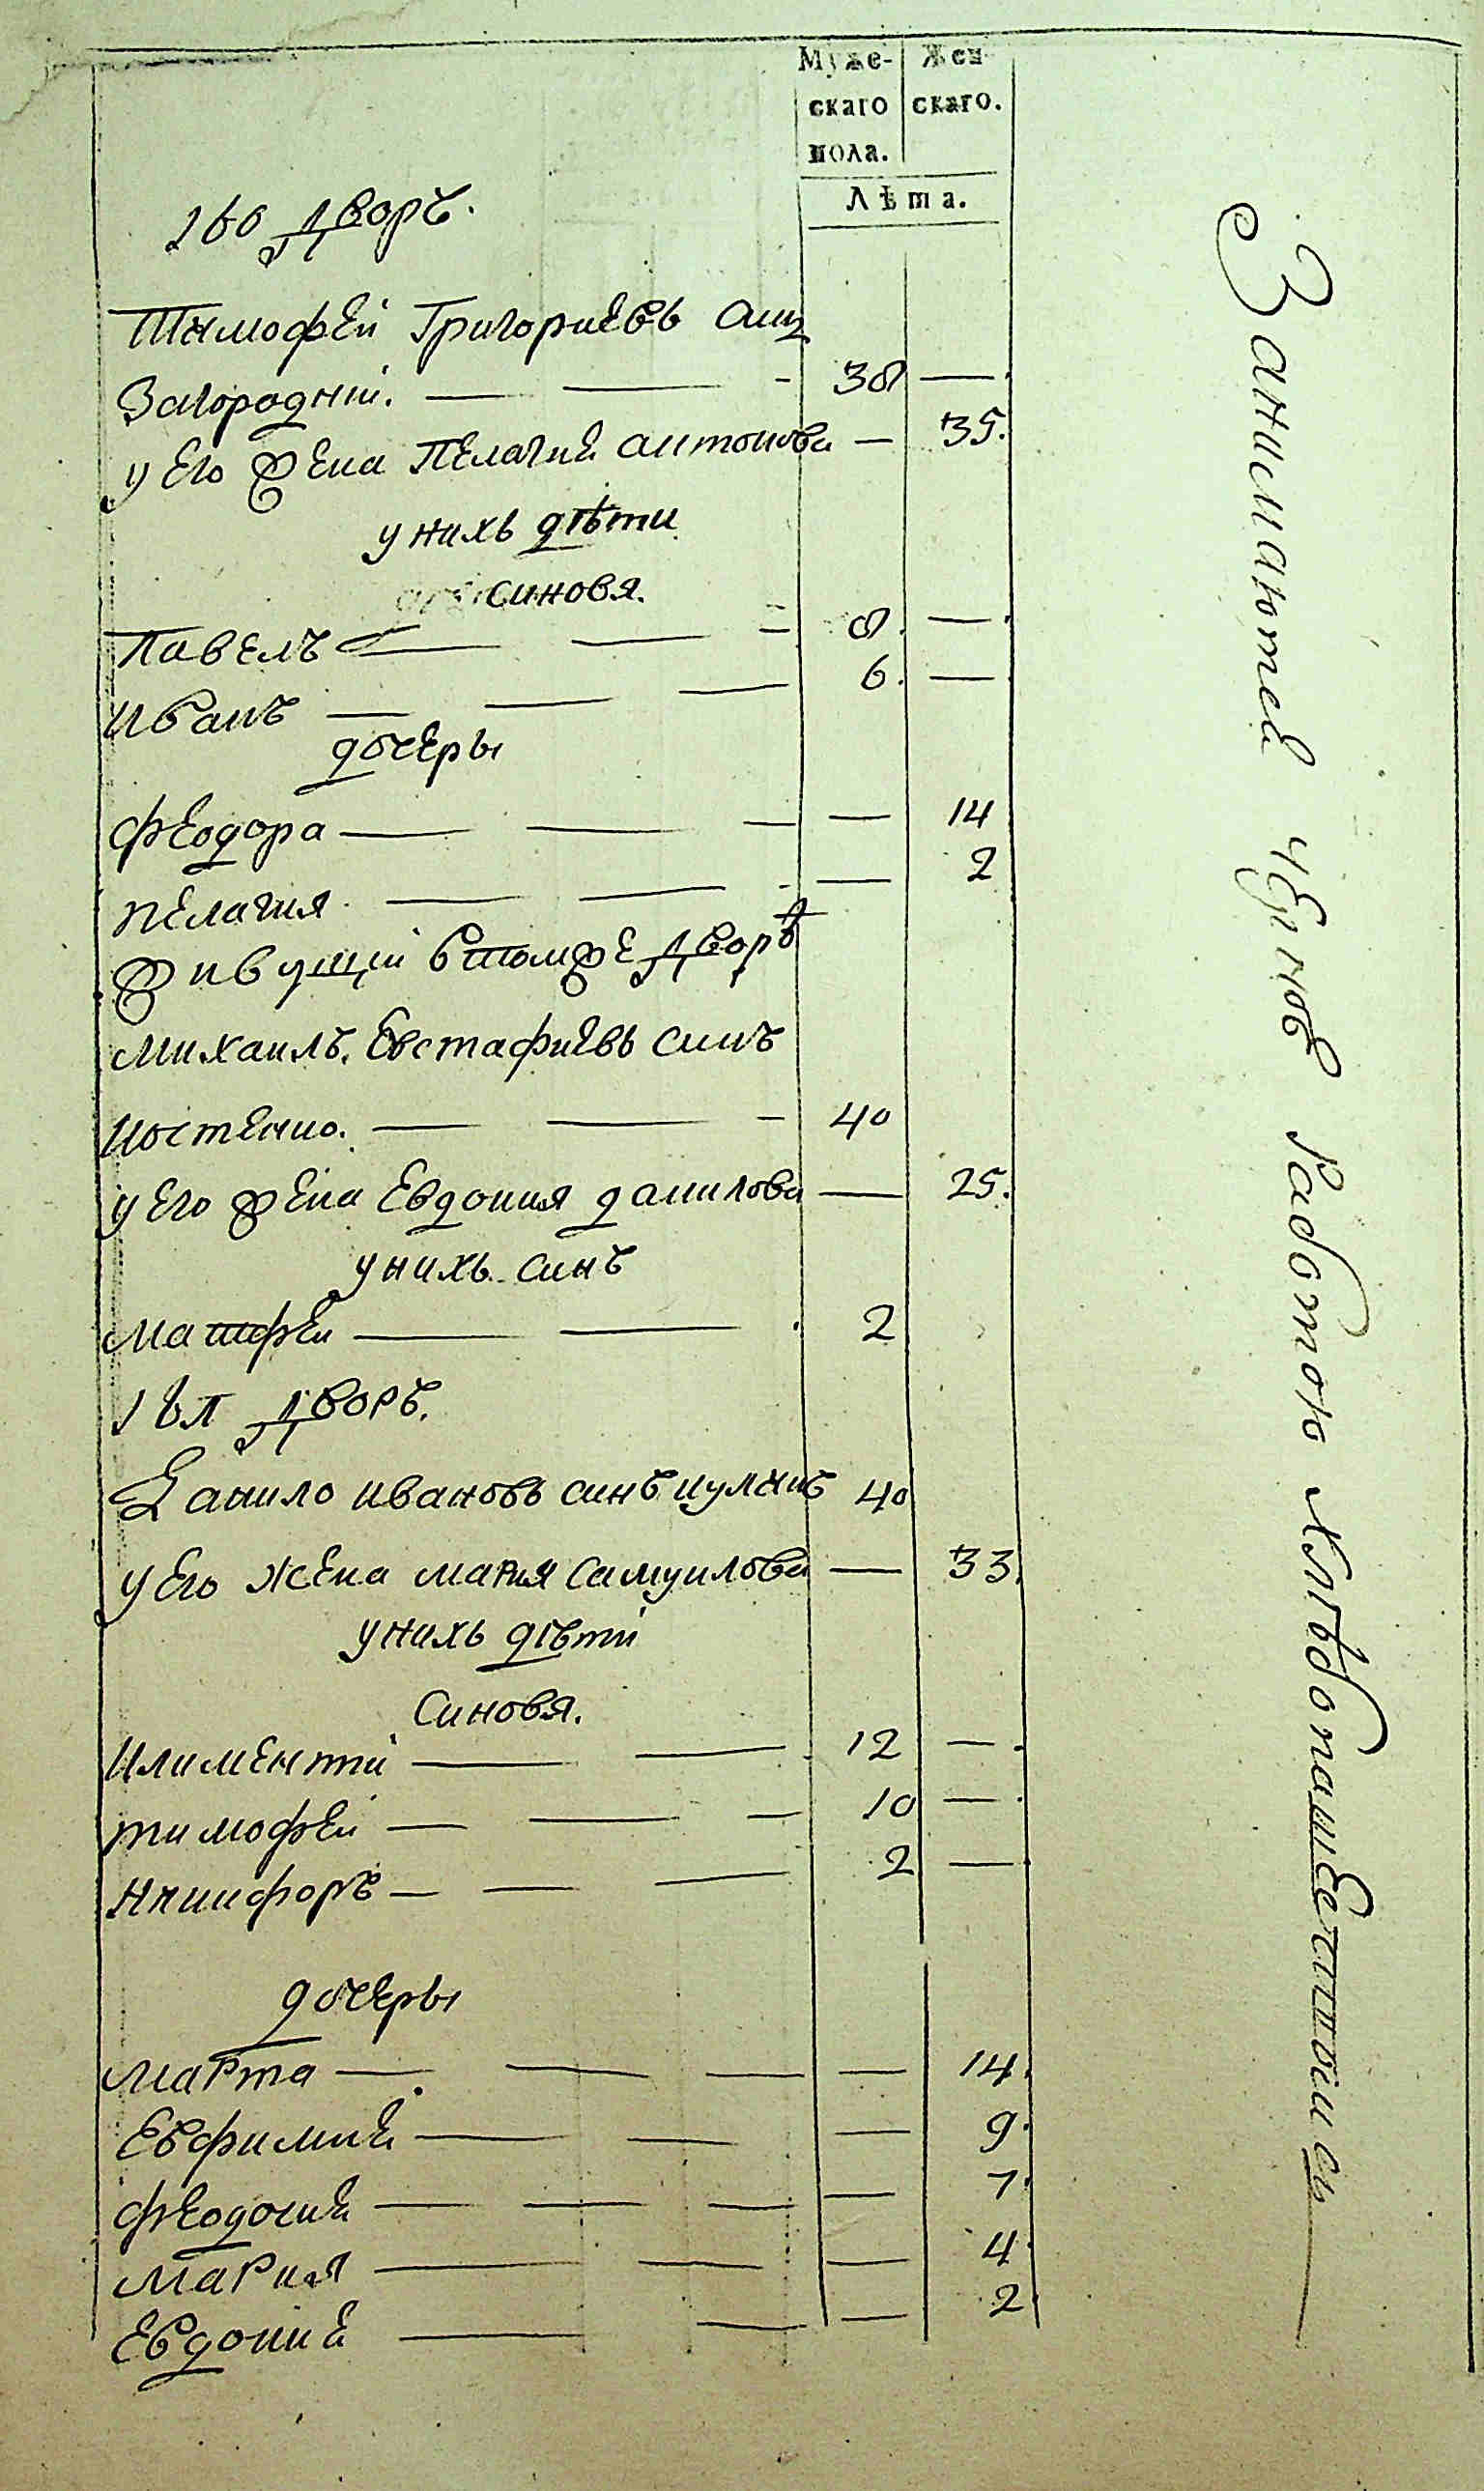 Муже-
скаго
пола.
Жен-
скаго.
Лѣта.
160 дворъ.
Тимофей Григориевъ син
Загородний. — — - 38 —
у Его жена Пелагия антонова — 35.
у нихъ дѣти
синовя.
Павелъ — — - 8. —
иванъ — — — 6. —
дочеры
феодора — — — — 14
пелагия — — - — 2
живущий втомже дворѣ
михаилъ Евстафиевъ синъ
костенко. — — - 40
у Его жена Евдокия данилова — 25.
у нихъ синъ
матфей — — 2
дворъ.
Данило ивановъ синъ 40
у Его жена мария самуилова — 33.
у нихъ дѣти
синовя.
климентий — — 12 —
тимофей — — - 10 —
никифоръ — — — 2 —
дочеры
марта — — — — 14.
Евфимия — — — 9.
феодосия — — — — 7.
мария — — — 4.
Евдокия — — — 2.
Занимаются чернов работою хлѣбопашественною